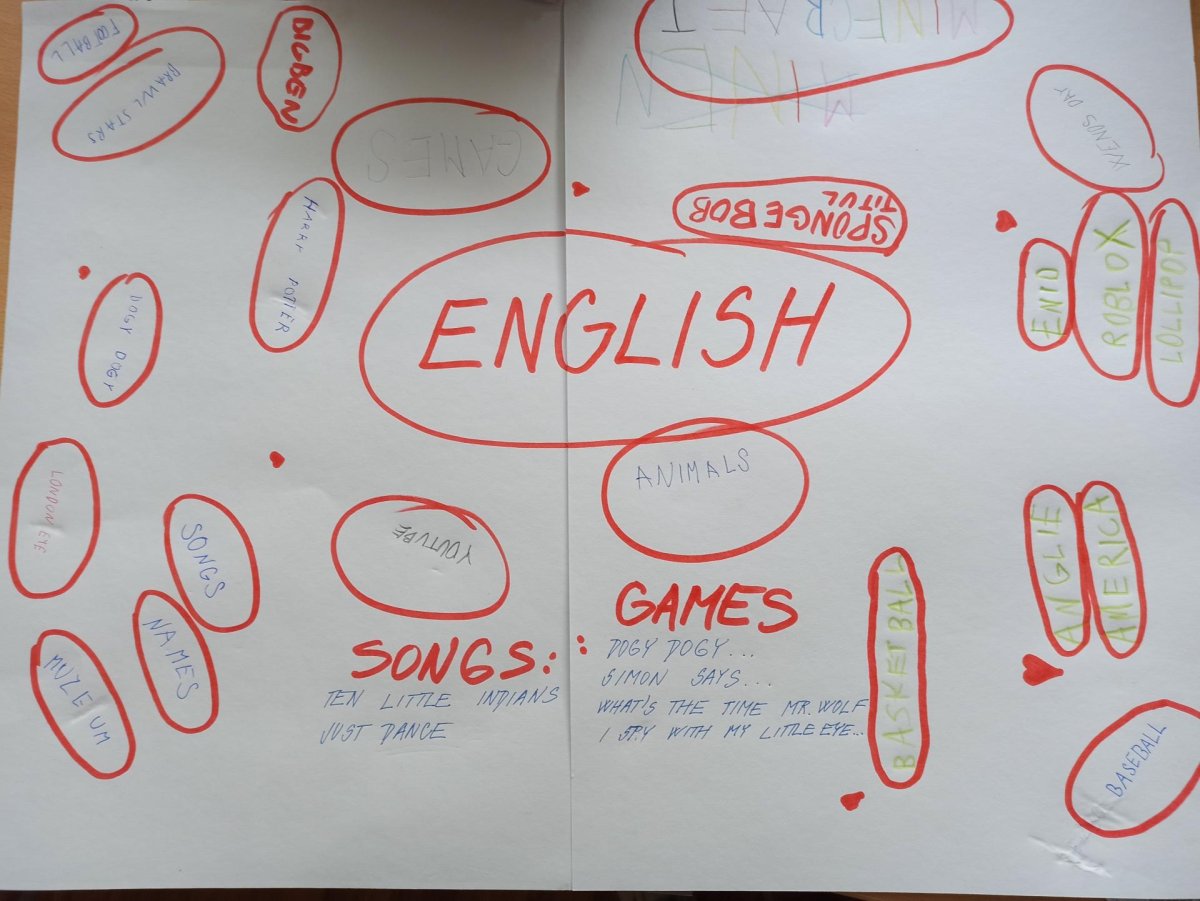 FOOTBALL
BRAWL STARS
BIGBEN
MINECRAFT
MINEN
WENDS DAY
GAMES
HARRY POTTER
SPONGEBOB
TITUL
ENID
ROBLOX
LOLLIPOP
ENGLISH
DOGY DOGY
ANIMALS
LONDON EYE
SONGS
YOUTUBE
NAMES
MUZE UM
ANGLIE
AMERICA
BASKETBALL
BASEBALL
SONGS:
TEN LITTLE INDIANS
JUST DANCE
GAMES :
DOGY DOGY...
SIMON SAYS...
WHAT'S THE TIME MR. WOLF
I SPY WITH MY LITTLE EYE...